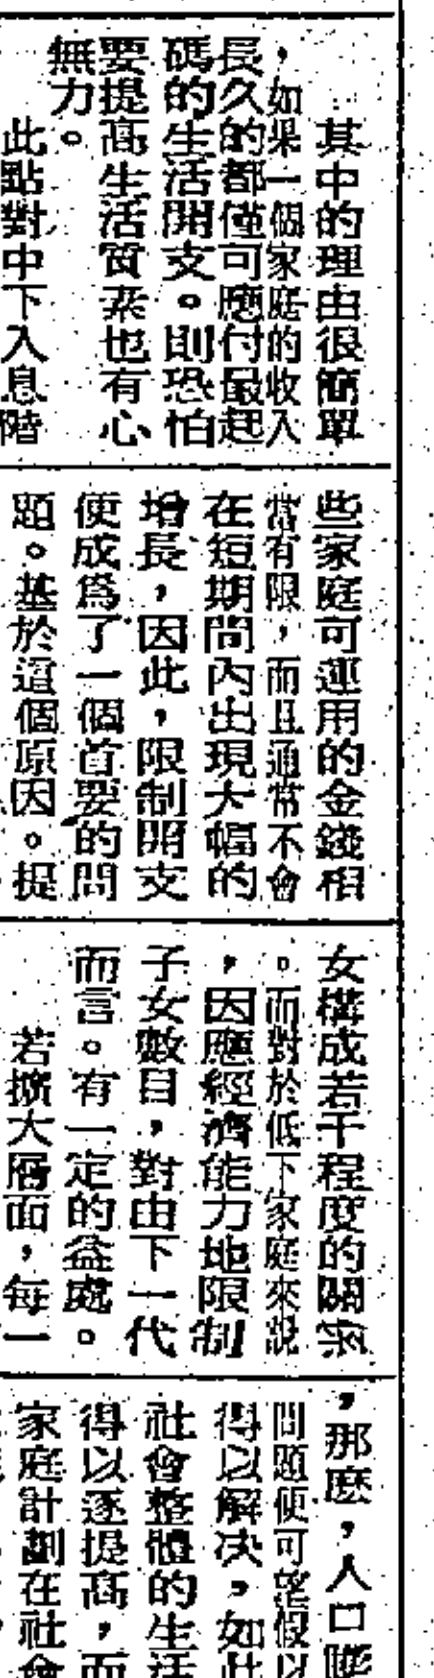 其中的理由很簡單
，如果一個家庭的收入
長久的都僅可應付最起
碼的生活開支。則恐怕
要提高生活質素也有心
無力。
此點對中下入息階
些家庭可運用的金錢相
當有限，而且通常不會
在短期間內出現大幅的
增長，因此，限制開支
便成爲了一個首要的問
題。基於這個原因。提
女構成若干程度的關系
。而對於低下家庭來說
，因應經濟能力地限制
子女數目，對由下一代
而言。有一定的益處。
若擴大層面，每一
，那麽，人口
問題便可望假以
得以解决，如此
社會整體的生活
得以逐提高，而
家庭計劃在社會